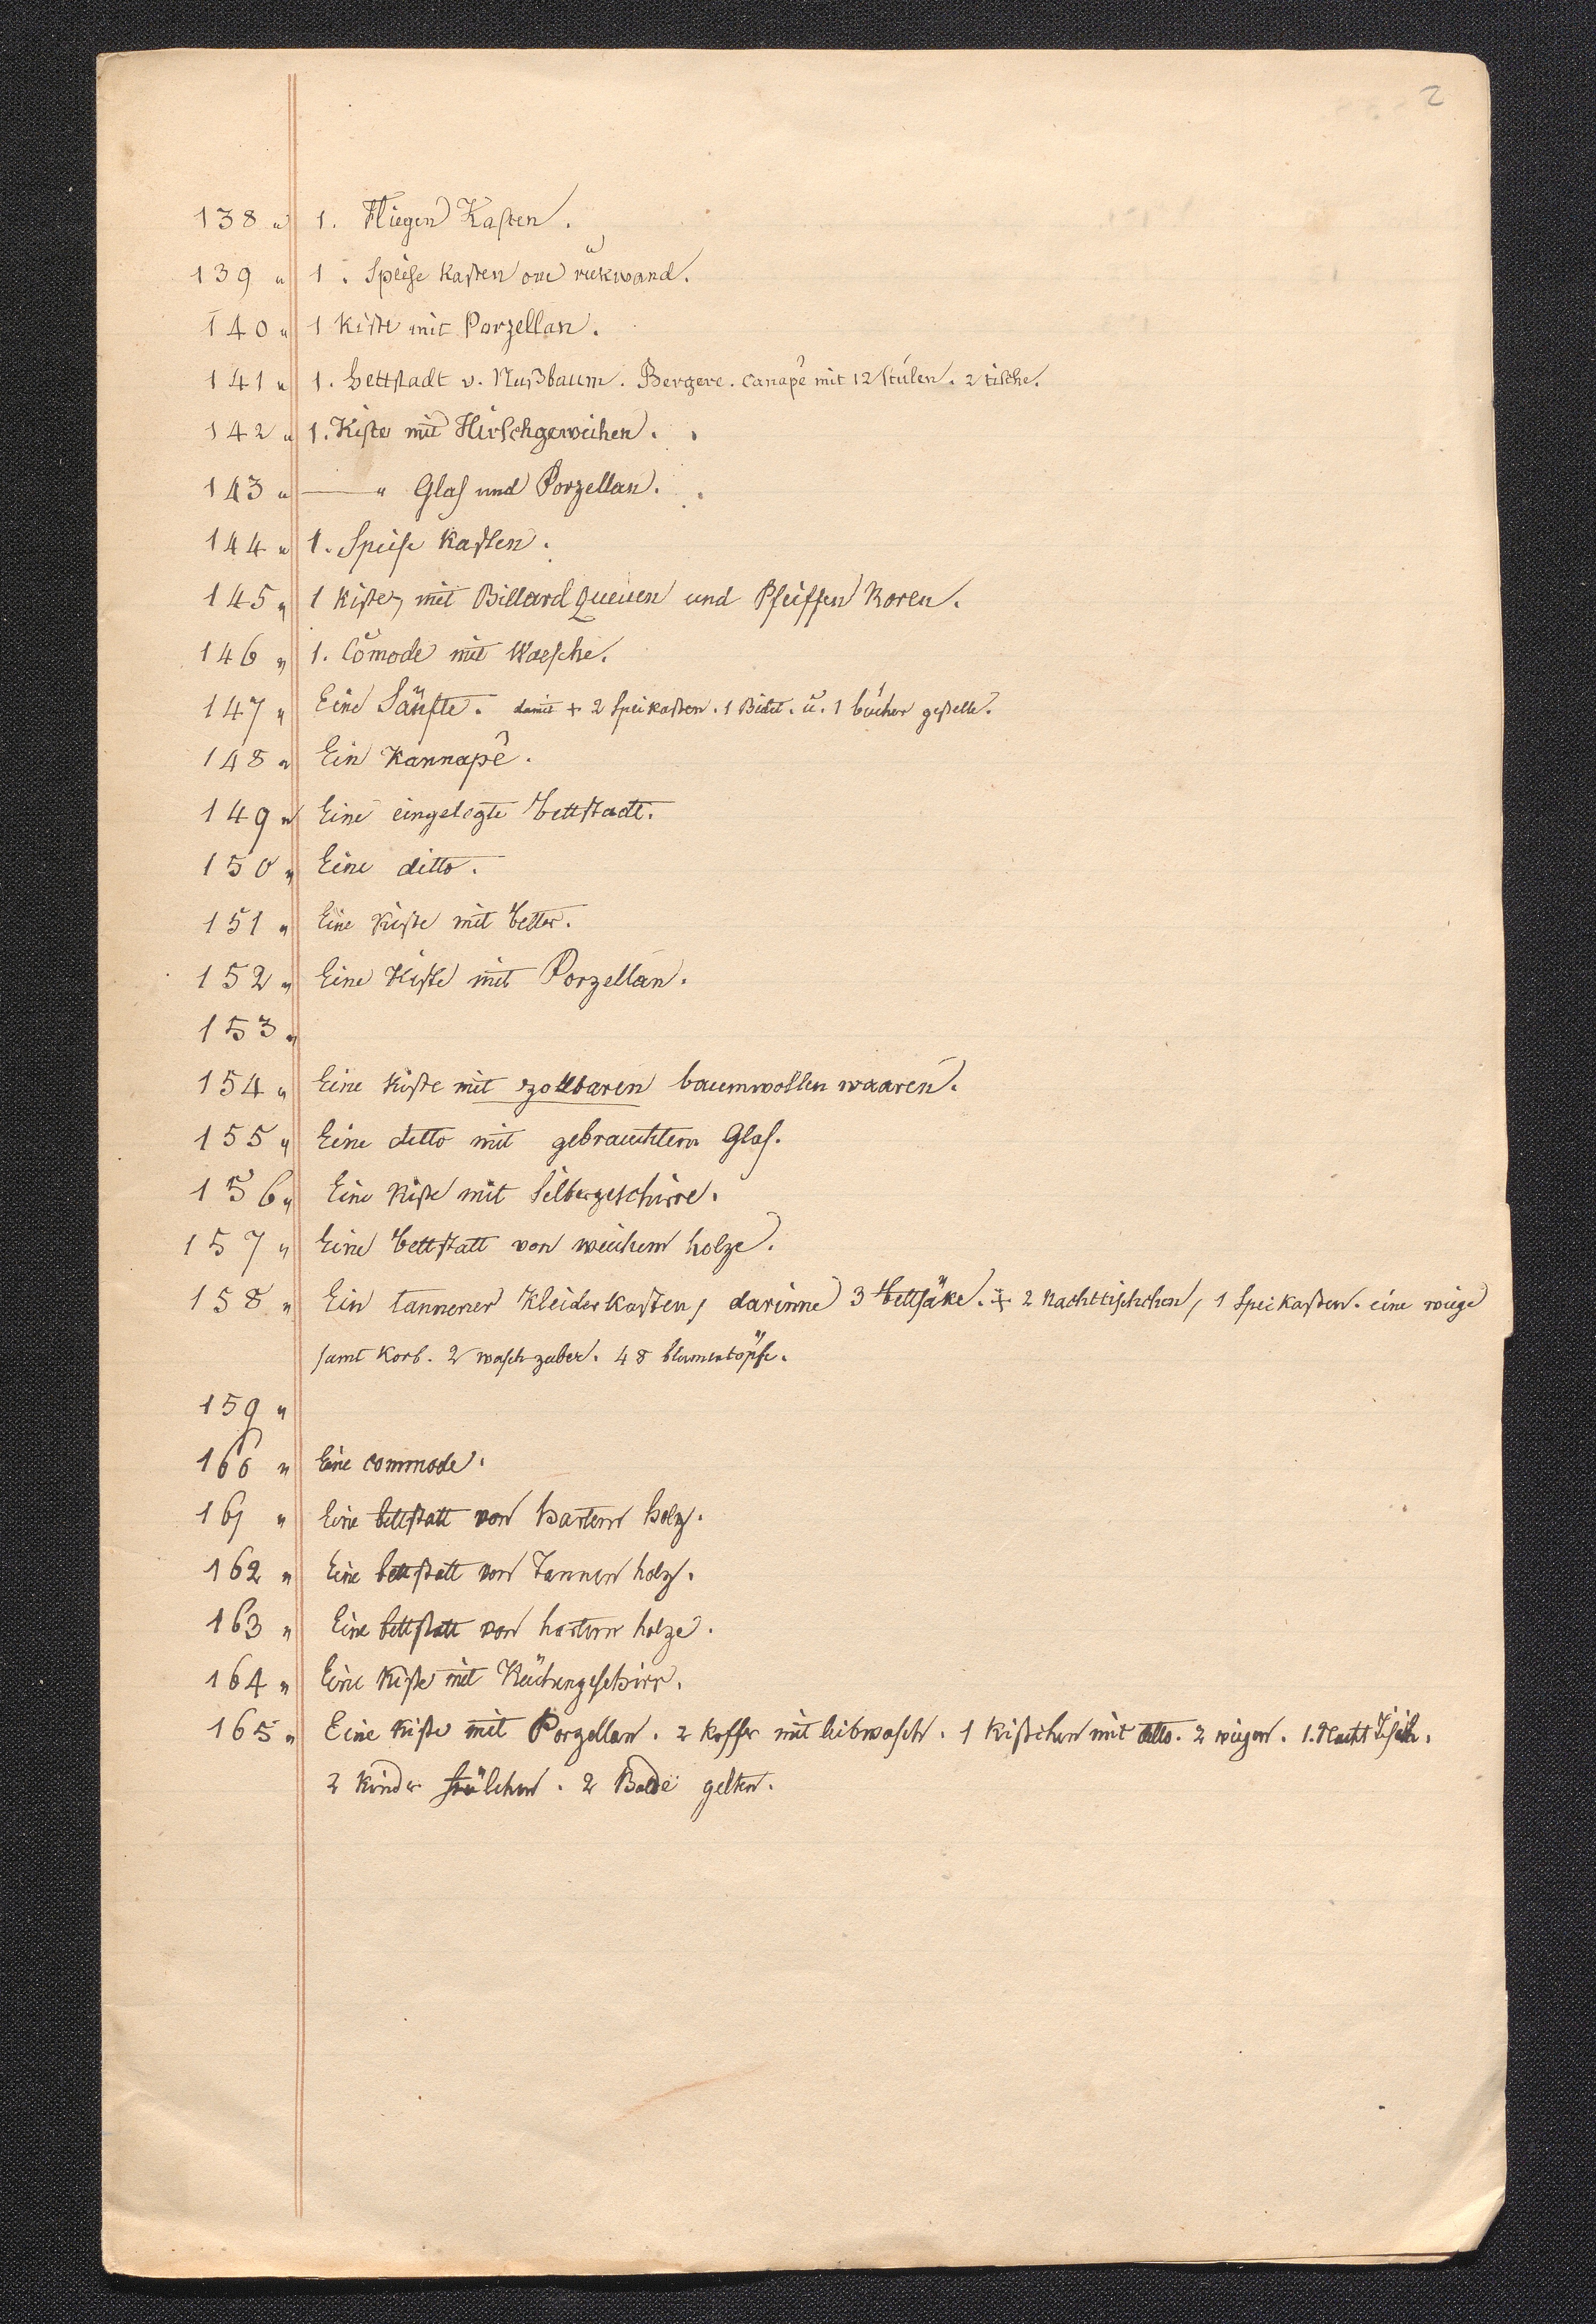 2
138 " 1. Fliegen Kasten.
139 " 1. Speise Kasten one rükwand.
140 " 1 Kiste mit Porzellan.
141 " 1. Bettstadt v. Nußbaum. Bergere. Canapé mit 12 Stülen. 2 tische.
142 " 1. Kiste mit Hirschgeweihen.
143 " — " Glas und Porzellan.
144 " 1. Speise Kasten.
145 " 1 Kiste, mit Billard Queuen und Pfeiffen Roren.
146 " 1. Comode mit Waesche.
147 " Eine Sänfte. damit + 2 Speikasten. 1 Bidet. u. 1 bücher gestelle.
148 " Ein Kannapé.
149 " Eine eingelegte bettstadt.
150 " Eine ditto.
151 " Eine Kiste mit better.
152 " Eine Kiste mit Porzellan.
153 "
154 " Eine Kiste mit zollbaren baumwollen waaren.
155 " Eine ditto mit gebrauchtem Glas.
156 " Eine Kiste mit Silbergeschirre.
157 " Eine bettstatt von weichem holze.
158 " Ein tannener Kleiderkasten, darinne 3 bettsäke. + 2 Nachttischchen, 1 Speikasten. eine wiege
samt Korb. 2 waschzuber. 48 blumentöpfe.
159 "
160 " Eine commode.
161 " Eine bettstatt von hartem holz.
162 " Eine bettstatt von Tannen holz.
163 " Eine bettstatt von hartem holze.
164 " Eine Kiste mit Küchengeschirr.
165 " Eine Kiste mit Porzellan. 2 Koffer mit leibwasch. 1 Kistchen mit ditto. 2 wiegen. 1. Nacht Tisch.
2 Kinder stülchen. 2 Bade gelten.